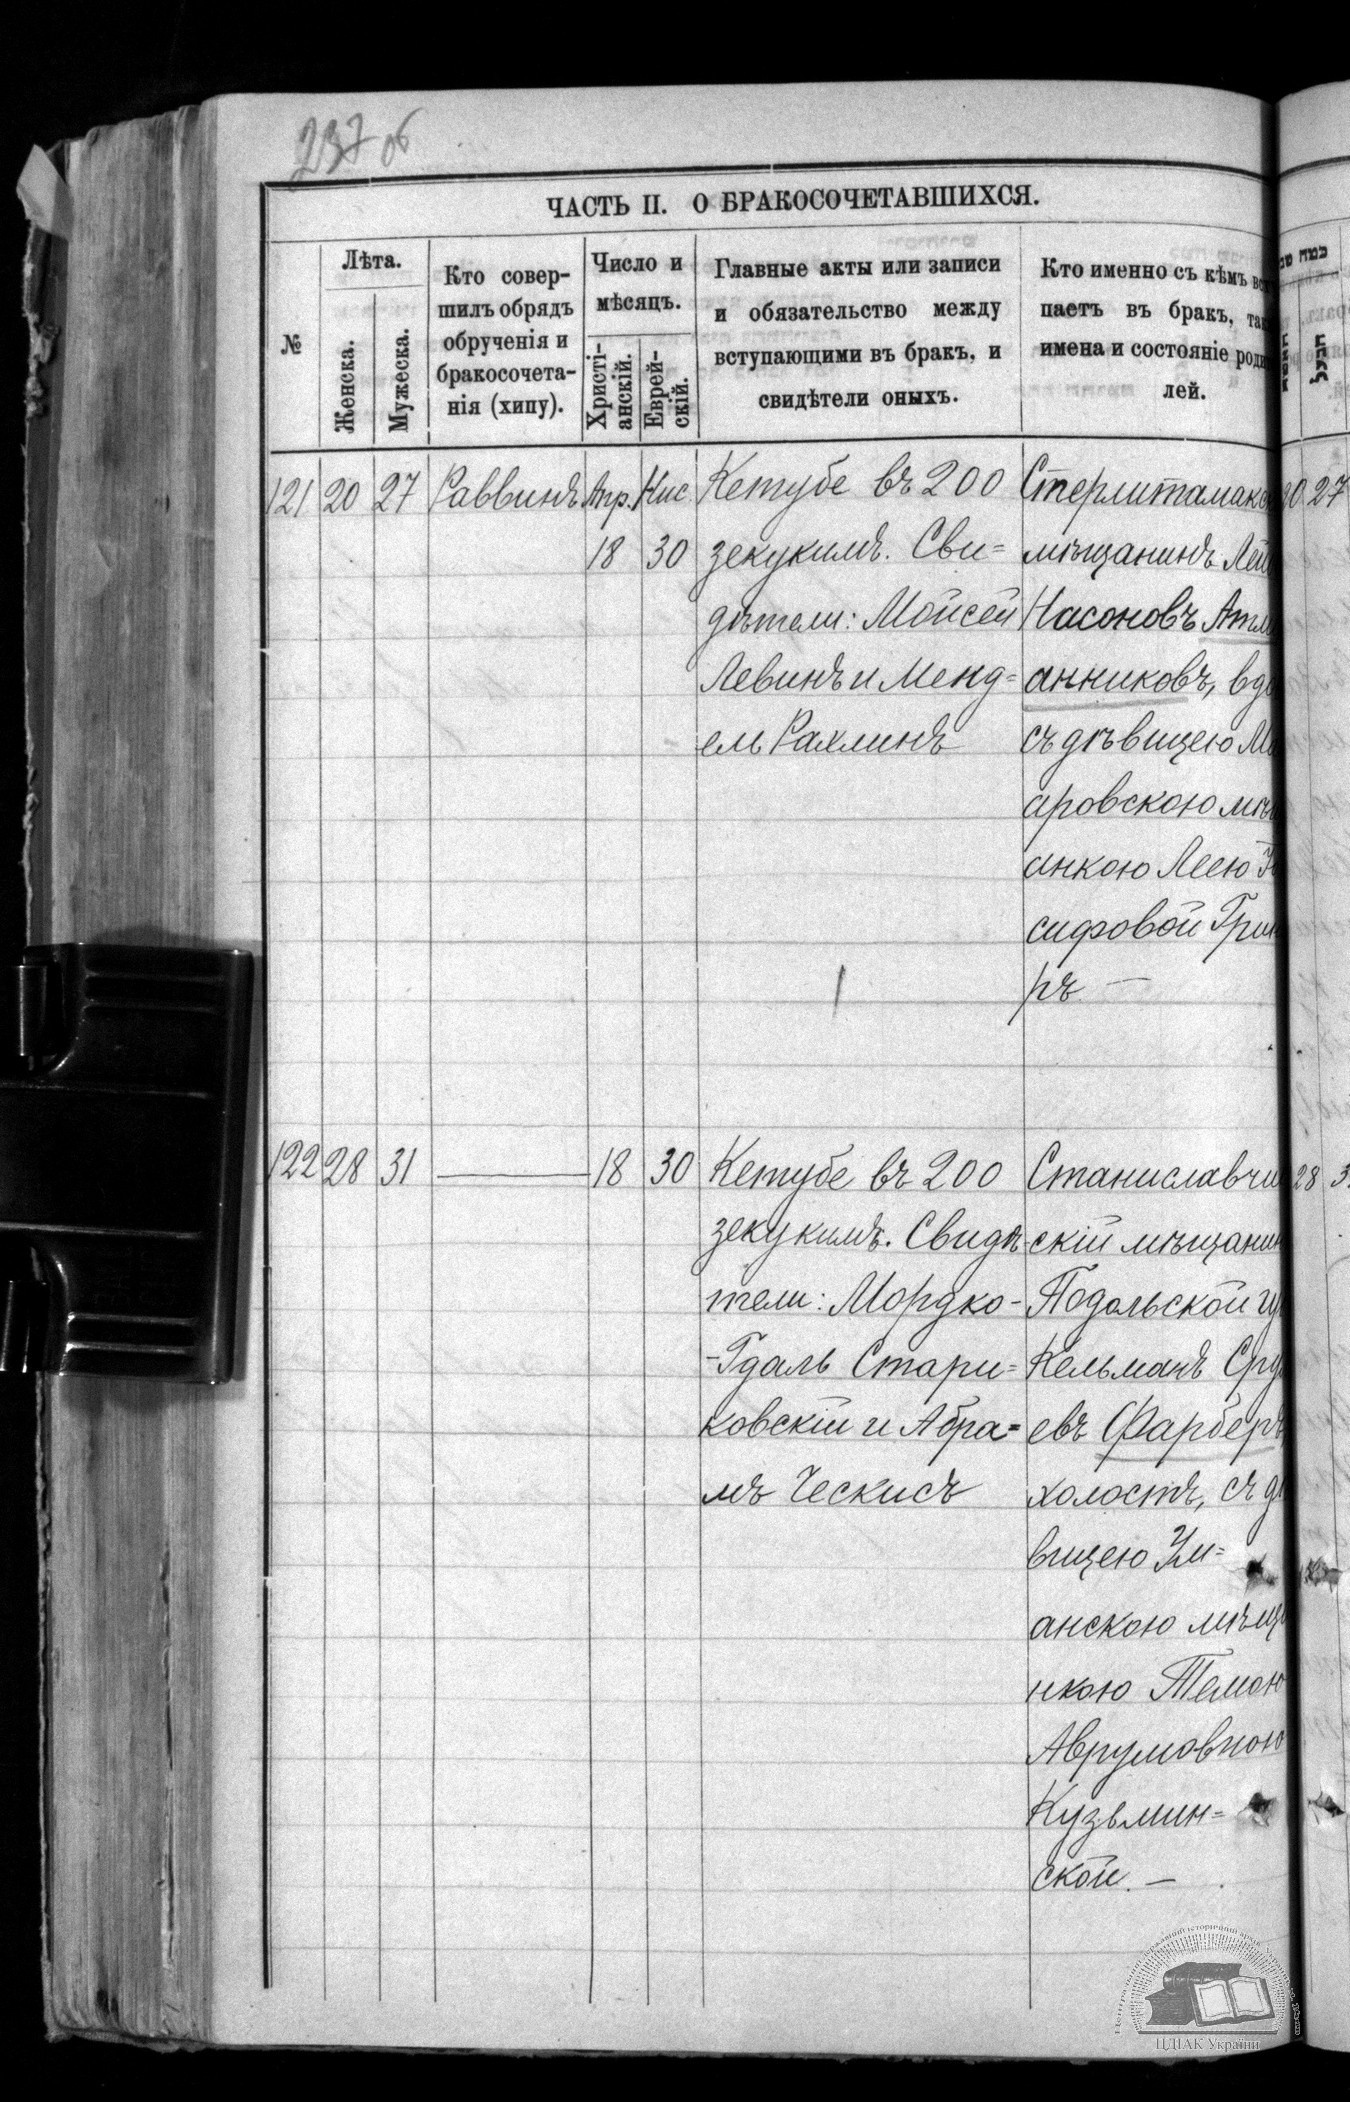 237 об
ЧАСТЬ II. О БРАКОСОЧЕТАВШИХСЯ.
№
Лѣта.
Женска.
Мужеска.
Кто совер-
шилъ обрядъ
обрученія и
бракосочета-
нія (хипу).
Число и
мѣсяцъ.
Христі-
анскій.
Еврей-
скій.
Главные акты или записи
и обязательство между
вступающими въ бракъ, и
свидѣтели оныхъ.
Кто именно съ кѣмъ вс
паетъ въ бракъ, так
имена и состояніе роди
лей.
121 20 27 Раввинъ Апр. Нис
18 30
Кетубе въ 200
зекукимъ. Сви=
дѣтели: Мойсей
Левинъ и Менд=
ель Рахлинъ
Стерлитамакс
мѣщанинъ Лей
Насоновъ Атл
анниковъ, вд
съ дѣвицею Ма
аровскою мѣ
анкою Леею
сифовой Грин
ръ —
122 28 31 — 18 30
Кетубе въ 200
зекукимъ. Свидѣ-
тели: Мордко-
-Гдаль Стари=
ковскій и Абра=
мъ Ческисъ
Станиславчи
скій мѣщанин
Подольской гу
Кельманъ Сру
евъ Фарберъ
холостъ, съ дѣ
вицею Ум=
анскою мѣща
нкою Темою
Аврумовною
Кузьмин=
ской. —
20 27
28 3
ЦДІАК України